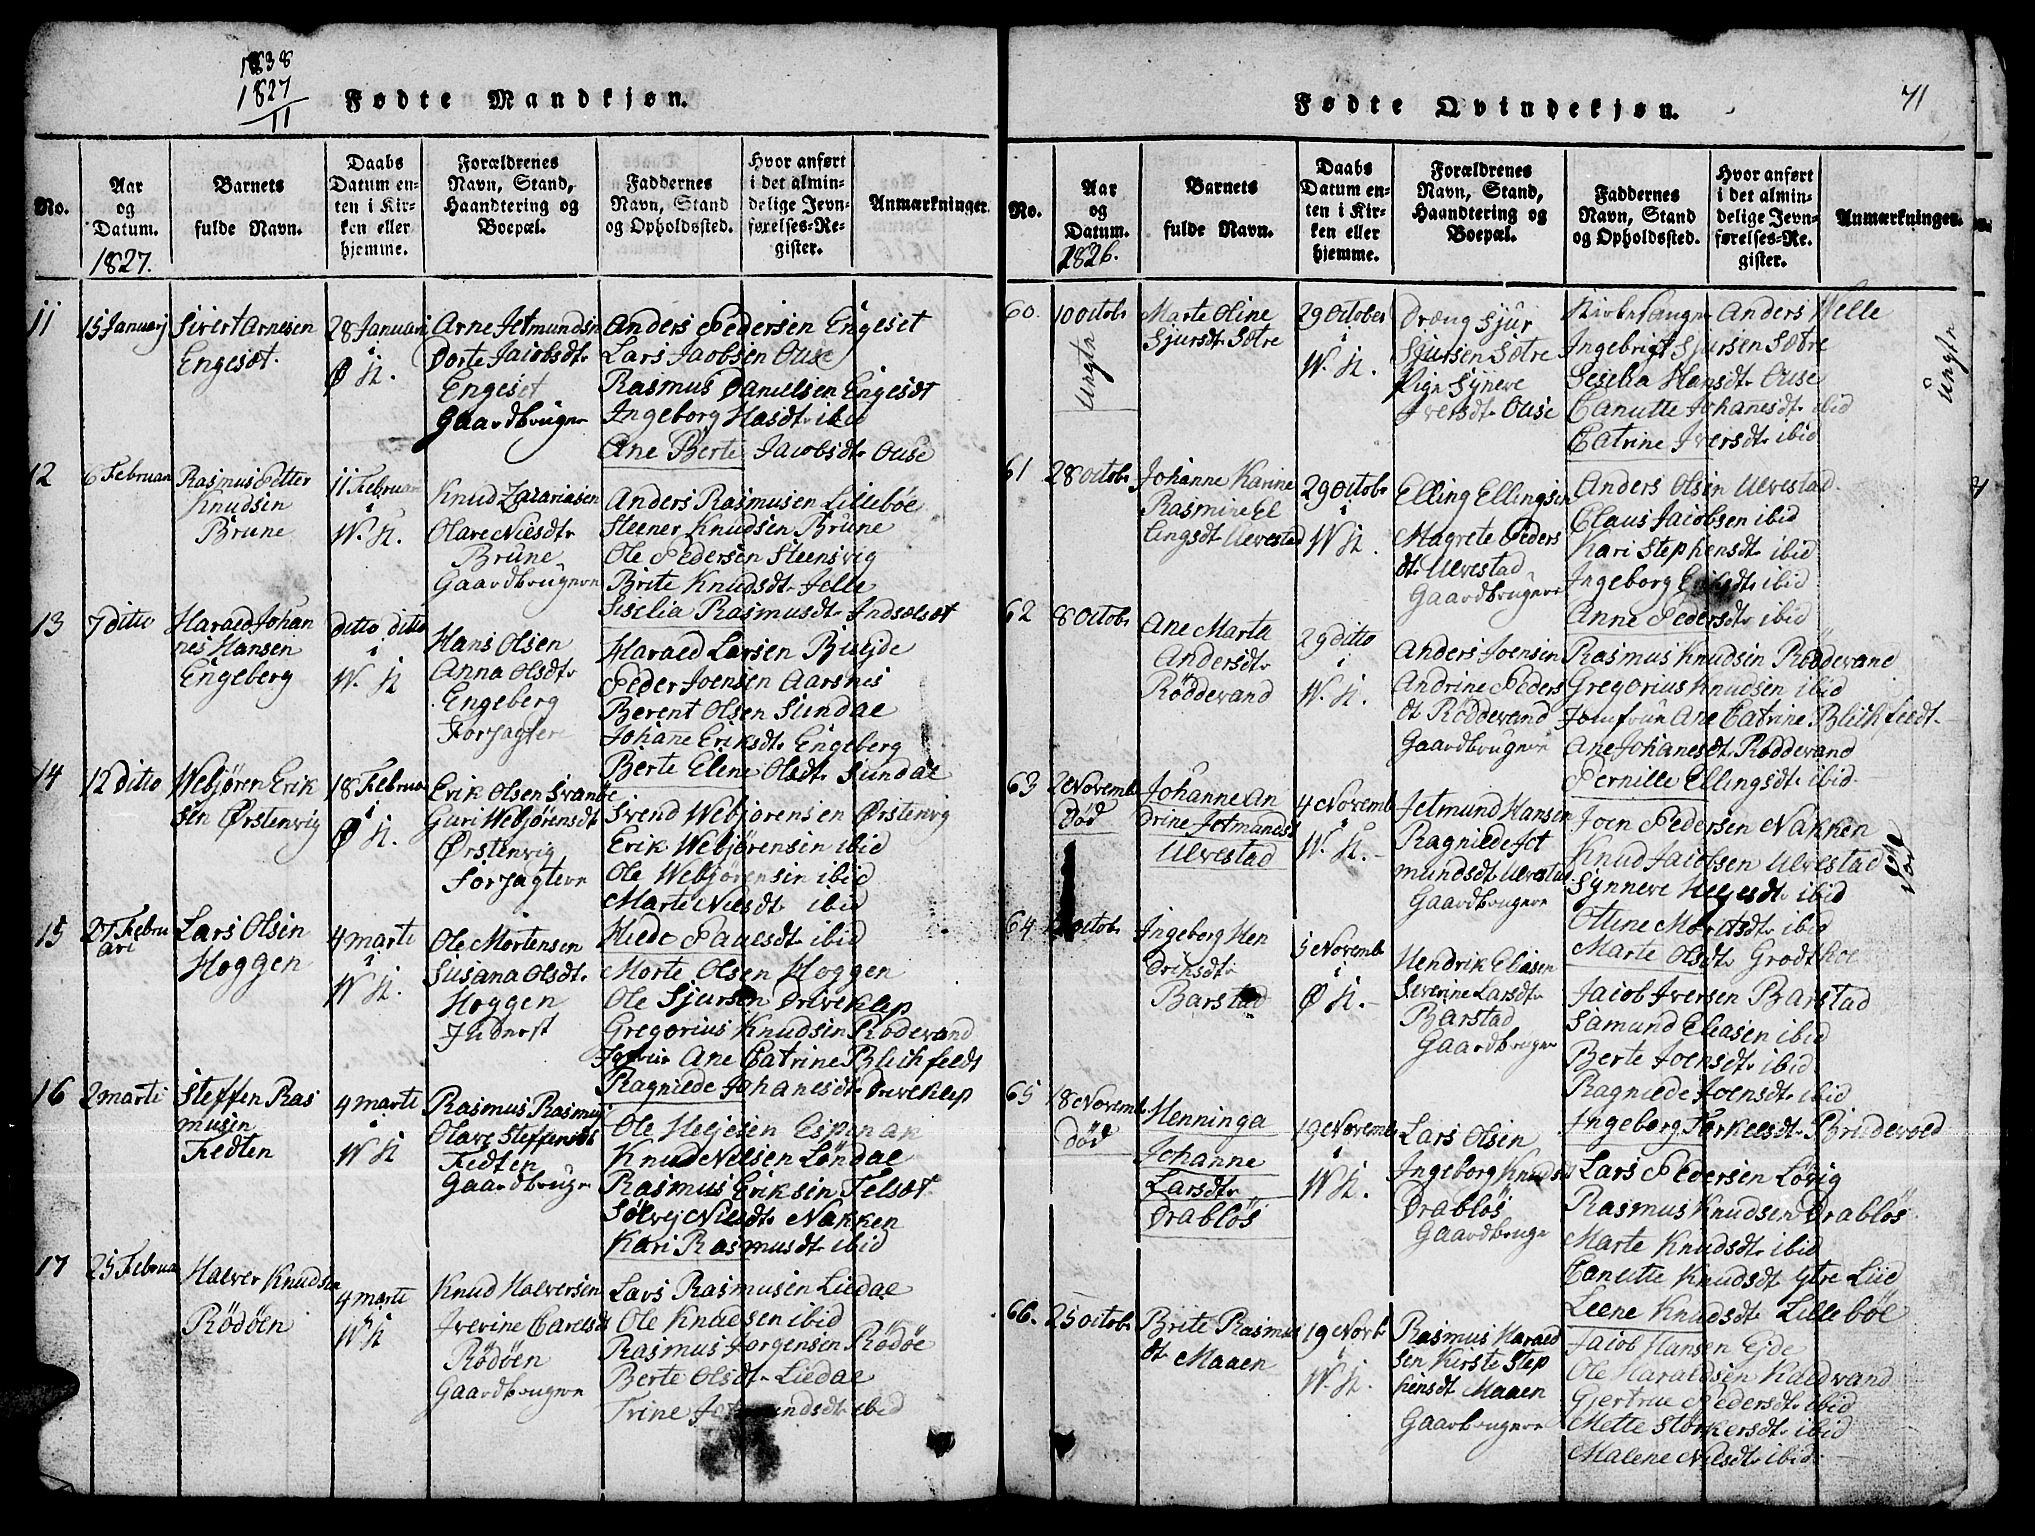 1838
1827
11
Fødte Mandkjøn.
No.
Aar og Datum.
Barnets fulde Navn.
Daabs Datum enten i Kirken eller hjemme.
Forældrenes Navn, Stand, Haandtering og Boepæl.
Faddernes Navn, Stand og Opholdssted.
Hvor anført i det almindelige Jevnførelses-Register.
Anmærkninger.
1827.
11
15 Januarj
Sivert Arnesen
Engesøt.
28 Januari
i
Ø K.
Arne Jetmundsn
Dorte Jacobsdtr
Engeset
Gaardbruger
Anders Pedersen Engeset
Lars Jacobsen Ouse
Rasmus Danielsen Engesdt
Ingeborg Hasdtr ibid
Ane Berte Jacobsdtr Ouse
12
6 Februari
Rasmus Petter
Knudsen
Brune
11 Februari
i
W. K.
Knud Zacariasen
Olave Nielsdtr
Brune
Gaardbrugere
Anders Rasmusen Lillebøe
Steener Knudsen Brune
Ole Pedersen Steensvig
Brite Knudsdtr Jelle
Siselia Rasmusdtr Indselset
13
7 ditto
Harald Johan
nes Hansen
Engeberg
ditto ditto
i
W. K
Hans Olsen
Anna Olsdtr
Engeberg
Forpagtere
Harald Larsen Bilejde
Peder Joensen Aarsnes
Berent Olsen Sundal
Johane Eriksdtr Engeberg
Berte Elene Olsdtr Sundal
14
12 ditto
Webjören Erik
sen Ørstenvig
18 Februar
i
Ø K.
Erik Olsen Svanbe
Guri Webjörensdt
Ørstenvig
Forpagtere
Svend Webjørensen Ørstenvig
Erik Webjørensen ibid
Ole Webjørensen ibid
Marte Nielsdtr ibid
Hilde Paulsdtr ibid
15
27 Febru
ari
Lars Olsen
Hoggen
4 marti
i
W K.
Ole Mortensen
Susana Olsdtr
Hoggen
Morte Olsen Hoggen
Ole Sjursen Driveklep
Gregorius Knudsen Rödevand
Jomfrue Ane Catrine Blichfeldt
Ragnilde Johanesdtr Driveklep
16
2 marti
Steffen Ras
musen
Fedten
4 marti
i
W K
Rasmus Rasmus
Olave Steffensdt
Fedten
Gaardbruger
Ole Heljesen Espenak
Knud Nilsen Løndal
Rasmus Eriksen Felsøt
Sölvej Nielsdtr Nakken
Kari Rasmusdtr ibid
17
25 Februar
Halver Knudsen
Rödöen
4 marti
i
W K
Knud Halversen
Iverine Carelsdt
Rödöen
Gaardbrugere
Lars Rasmusen Liedal
Ole Knudsen ibid
Rasmus Jørgensen Rödöe
Berte Olsdtr Liedal
Trine Jetmundsdtr ibid
Fødte Qvindekjøn.
71
No.
Aar og Datum.
Barnets fulde Navn.
Daabs Datum enten i Kirken eller hjemme.
Forældrenes Navn, Stand, Haandtering og Boepæl.
Faddernes Navn, Stand og Opholdssted.
Hvor anført i det almindelige Jevnførelses-Register.
Anmærkninger.
1826.
60.
10 octobr
Uægte
Marte Oline
Sjursdtr Sætre
29 October
i
W. K.
Dreng Sjur
Sjursen Sætre
Pige Syneve
Iversdtr Ouse
Kirkesanger Anders Velle
Ingebrigt Sjursen Sætre
Seselia Hansdtr Ouse
Canutte Johanesdtr ibid
Catrine Iversdtr ibid
Uægte
61
28 octobr
Johanne Karine
Rasmine El
lingsdt Ulvestad
29 octobr
i
W K.
Elling Ellingsen
Magrete Peders
dtr Ulvestad
Gaardbrugere
Anders Olsen Ulvestad
Claus Jacobsen ibid
Kari Stephensdtr ibid
Ingeborg Eriksdtr ibid
Anne Pedersdtr ibid
62
8 octobr
Ane Marta
Andersdtr
Röddevand
29 ditto
i
W. K.
Anders Joensen
Andrine Peders
dt Röddevand
Gaardbrugere
Rasmus Knudsen Röddevand
Gregorius Knudsen ibid
Jomfrue Ane Catrine Blichfeldt
Ane Johanesdtr Röddevand
Pernille Ellingsdtr ibid
63
2 Novemb
Död
Johanne An
drine Jetmundsd
Ulvestad
4 Novemb
i
W. K.
Jetmund Hansen
Ragnilde Jet
mundsdt Ulvestad
Gaardbrugere
Joen Pedersen Nakken
Knud Jacobsen Ulvestad
Synneve Heljesdtr ibid
Ottine Moritsdtr ibid
Marte Olsdtr Grodthol
64
octobr
Ingeborg Hen
driksdtr
Barstad
5 Novemb
i
Ø K.
Hendrik Eliasen
Severine Larsdtr
Barstad
Gaardbruger
Jacob Iversen Barstad
Samund Eliasen ibid
Berte Joensdtr ibid
Ragnilde Joensdtr ibid
Ingeborg Torkelsdtr Bridevold
65
18 Novemb
Död
Henninga
Johanne
Larsdtr
Drabløs
19 Novemb
i
W K.
Lars Olsen
Ingeborg Knudsd
Drabløs
Gaardbruger
Lars Pedersen Løvig
Rasmus Knudsen Drabløs
Marte Knudsdtr ibid
Canutte Knudsdtr Ytre Liid
Leene Knudsdtr Lillebøe
66.
25 octobr
Brite Rasmus
dtr Maaen
19 Novbr
i
W. K.
Rasmus Harald
sen Kirste Step
hensdt Maaen
Gaardbrugere
Jacob Hansen Ejde
Ole Haraldsen Kaldvand
Gjertrue Pedersdtr ibid
Mette Storkersdtr ibid
Malene Nilsdtr ibid